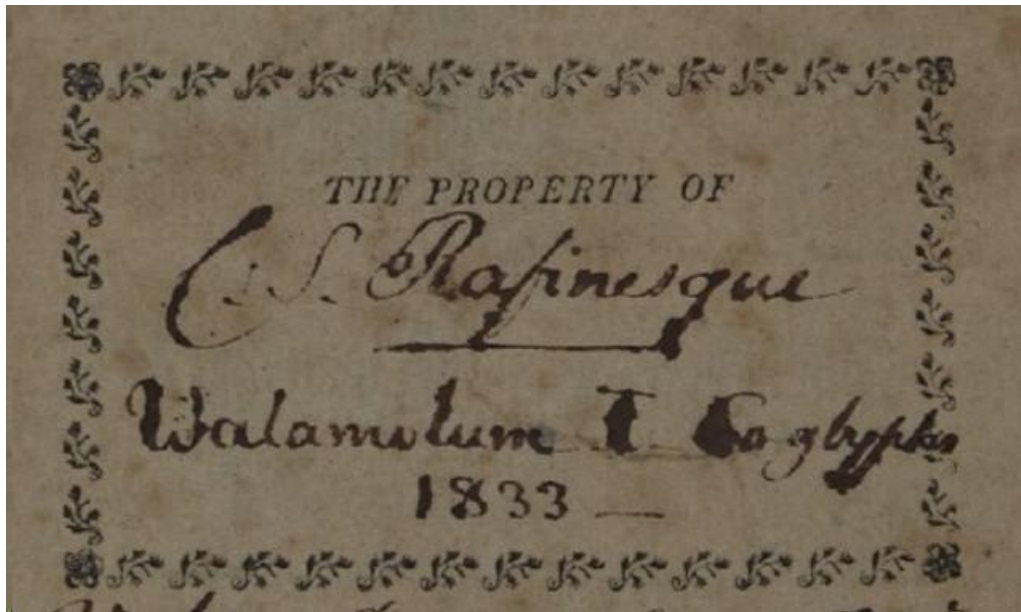 THE PROPERTY OF
C. S. Rafinesque
Walamolum I
1833 —